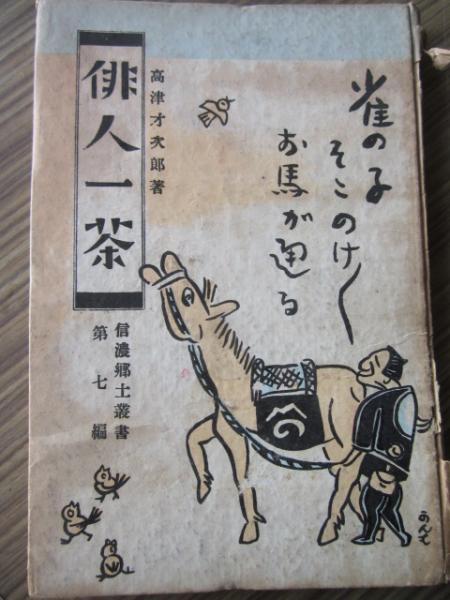 雀の子
そこのけ〳〵
お馬が通る
高津才次郎著
俳人一茶
信濃郷土叢書
第七編